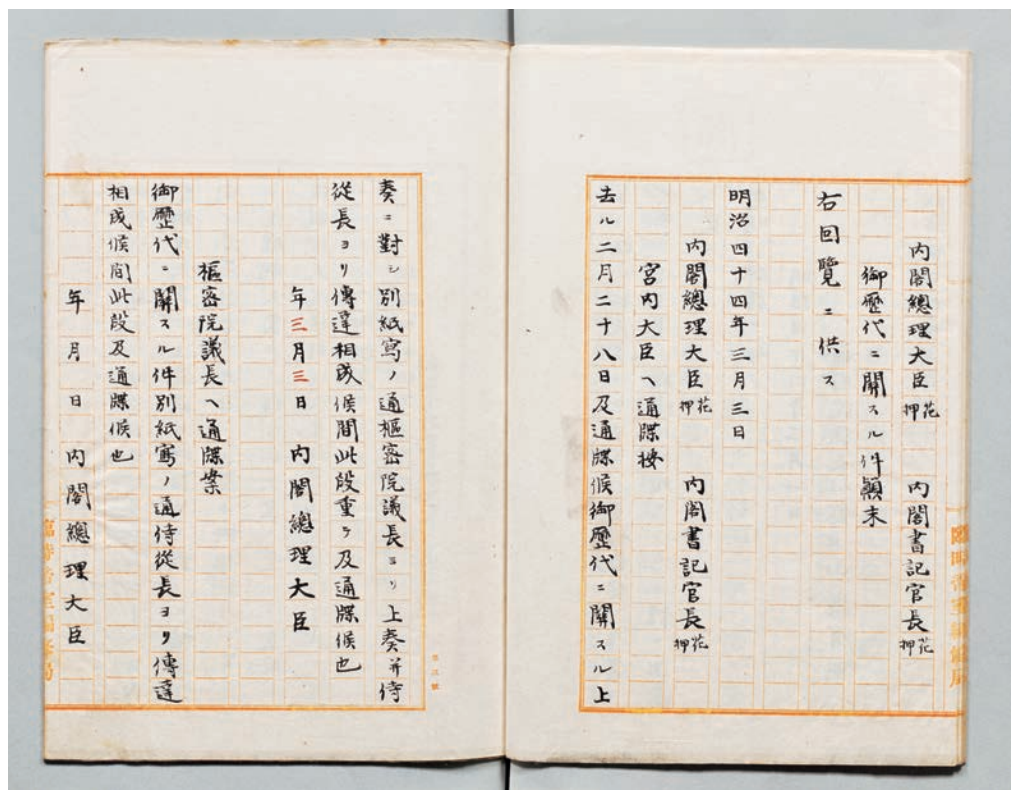 内閣總理大臣花押　内閣書記官長花押
御歷代ニ關スル件顚末
右回覽ニ供ス
明治四十四年三月三日
内閣總理大臣花押　内閣書記官長花押
宮内大臣ヘ通牒按
去ル二月二十八日及通牒候御歷代ニ關スル上
奏ニ對シ別紙寫ノ通樞密院議長ヨリ上奏幷侍
從長ヨリ傳達相成候間此段重テ及通牒候也
年三月三日　内閣總理大臣
樞密院議長ヘ通牒案
御歷代ニ關スル件別紙寫ノ通侍從長ヨリ傳達
相成候間此段及通牒候也
年　月　日　内閣總理大臣